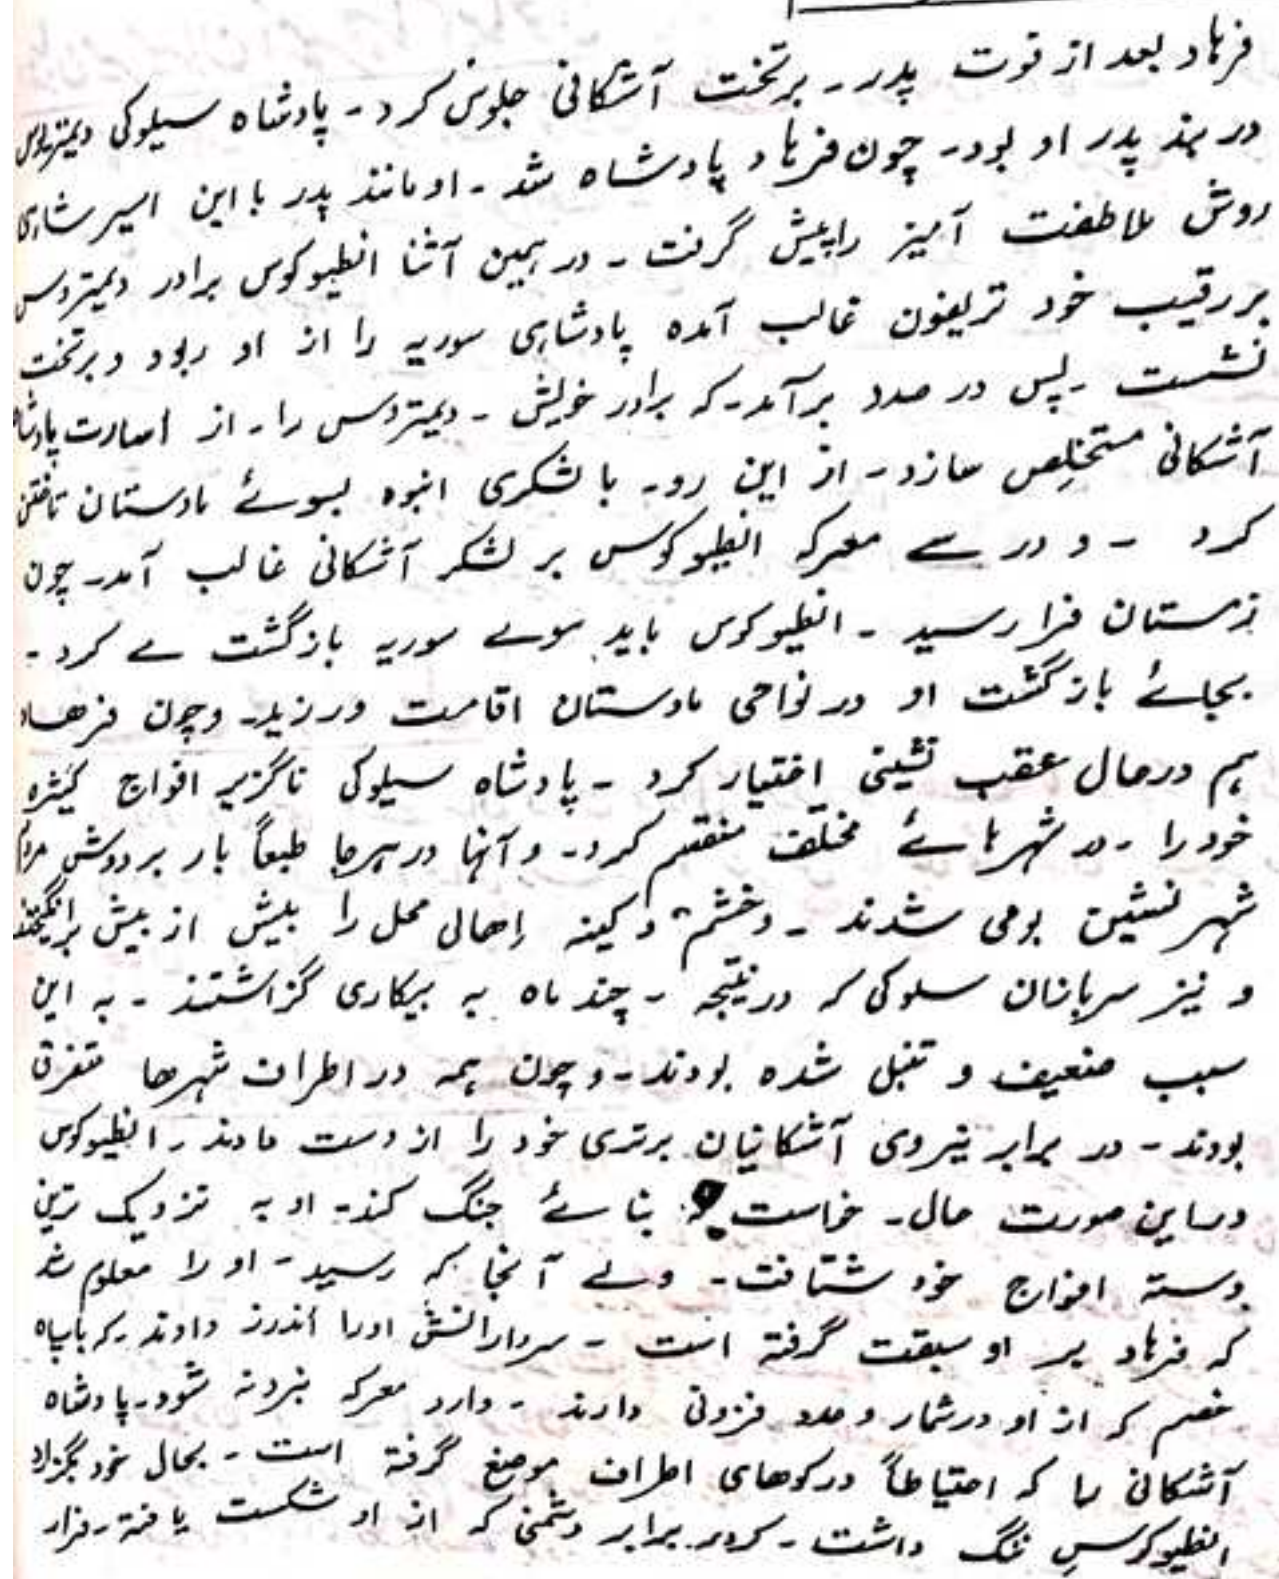 فرهاد بعد از فوت پدر۔ بر تخت آشکانی جلوس کرد۔ پادشاه سیلوکی دیمیتریوس
در بند پدر او بود۔ چون فرهاد پادشاه شد۔ او مانند پدر با این اسیر شاهی
روش ملاطفت آمیز را پیش گرفت۔ در ہمین آثنا انطیوکوس برادر دیمیتروس
بر رقیب خود تریفون غالب آمده پادشاہی سوریه را از او ربود و بر تخت
نشست۔ پس در صدد بر آمد۔ که برادر خویش۔ دیمیتروس را۔ از اسارت پادشاه
آشکانی مستخلِص سازد۔ از این رو۔ با لشکری انبوه بسوئے مادستان تافتن
کرد ۔ و در سے معرکہ انطیوکوس بر لشکر آشکانی غالب آمد۔ چون
زمستان فرا رسید ۔ انطیوکوس باید سوے سوریه باز گشت ے کرد۔
بجائے باز گشت او در نواحی مادستان اقامت ورزید۔ و چون فرھاد
ہم در حال عقب نشینی اختیار کرد ۔ پادشاه سیلوکی ناگزیر افواج کثیره
خود را ۔ در شہر ہائے مختلف منقسم کرد۔ و آنہا در ہر جا طبعاً بار بر دوش مردم
شہر نشین بومی شدند ۔ و خشم و کینه اِحالی محل را بیش از بیش برانگیختند
و نیز سربازان سلوکی که در نتیجہ ۔ چند ماه به بیکاری گزاشتند ۔ به این
سبب ضعیف و تنبل شده بودند۔ و چون ہمہ در اطراف شہرھا متفرق
بودند ۔ در برابر نیروی آشکانیان برتری خود را از دست دادند ۔ انطیوکوس
در این صورت حال۔ خواست بنائے جنگ کند۔ او به نزدیک ترین
دستہ افواج خود شتافت۔ ولے آنجا که رسید ۔ او را معلوم شد
کہ فرہاد بر او سبقت گرفته است ۔ سردارانش اورا اندرز دادند ۔ کہ با سپاه
خصم کہ از او در شمار و عدد فزونی دارند ۔ وارد معرکہ نبردنہ شود۔ پادشاه
آشکانی را کہ احتیاطاً در کوهای اطراف موضع گرفته است ۔ بحال خود بگزارد
انطیوکوسِ ننگ داشت ۔ کہ در برابر دشمنی کہ از او شکست یافتہ ۔ فرار